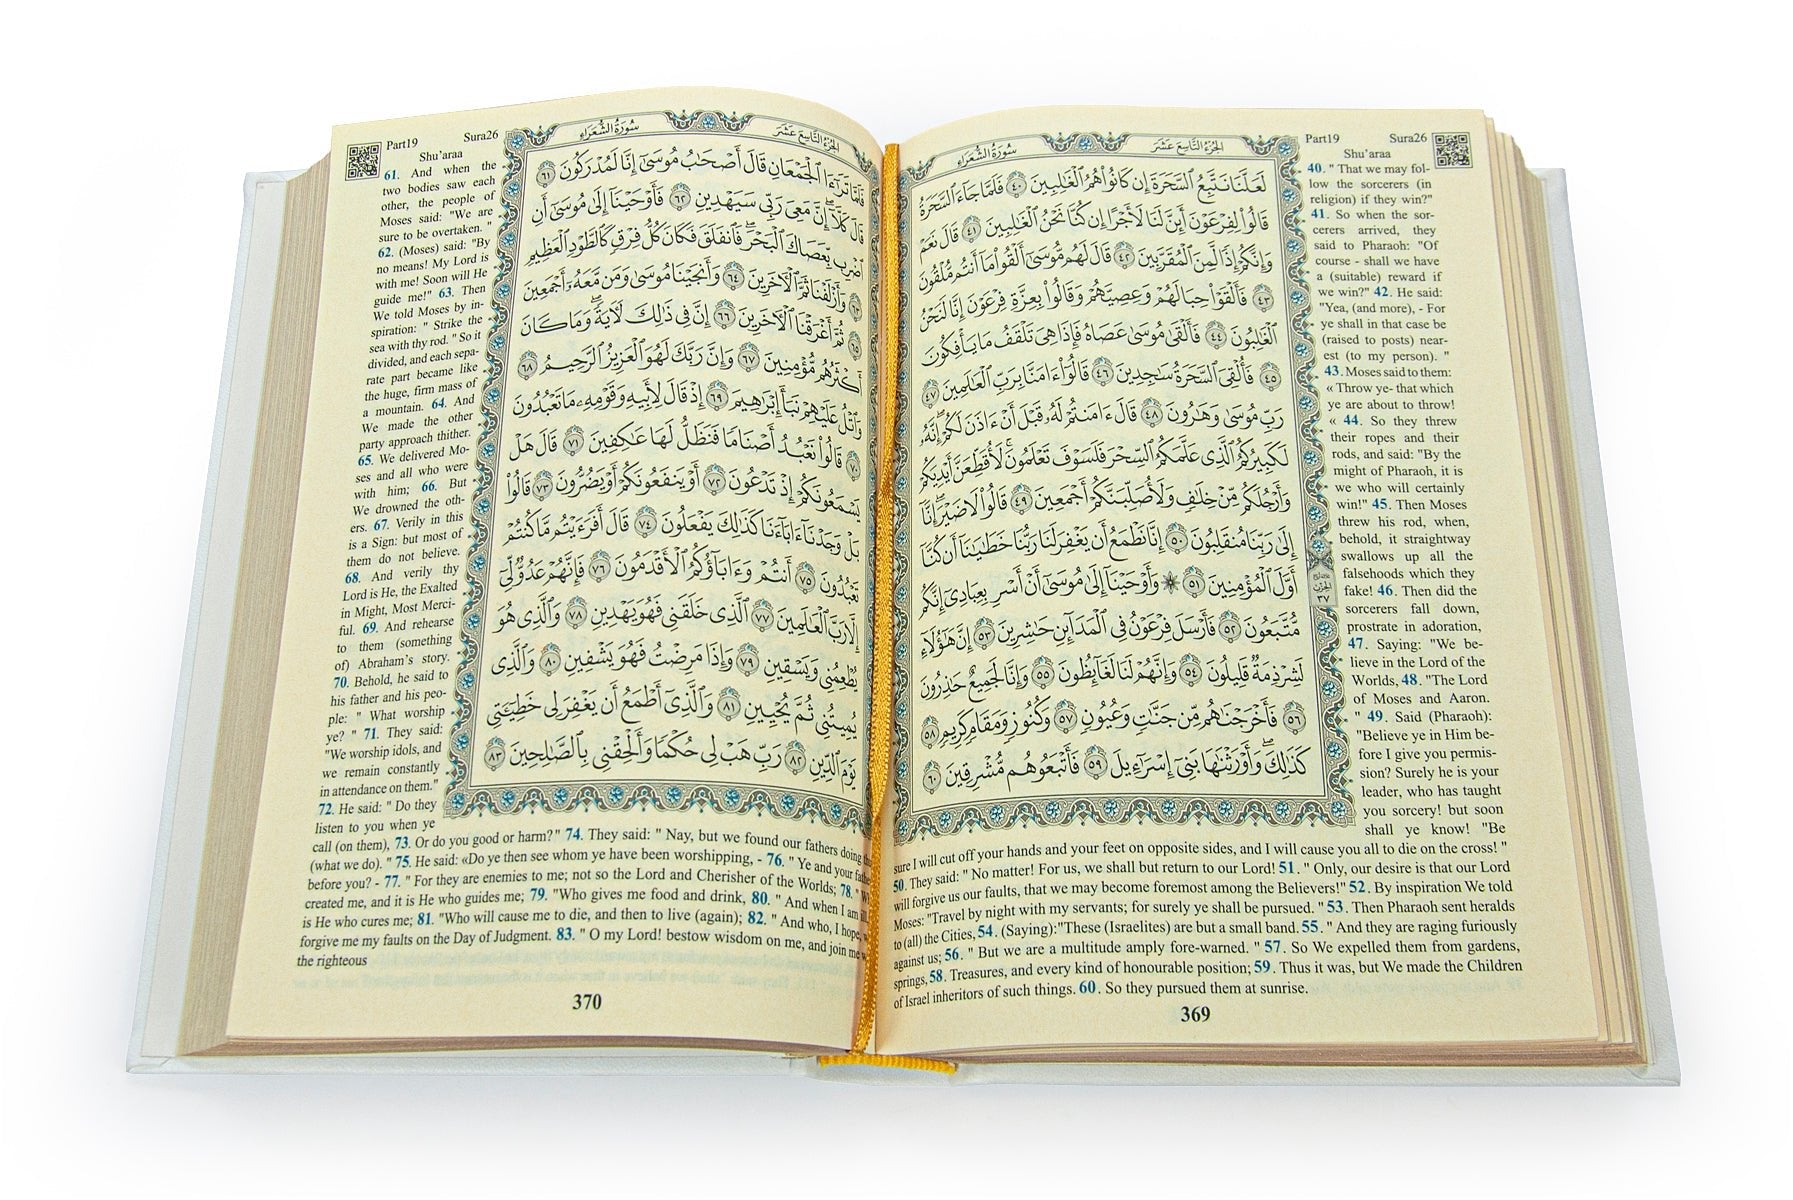 الجُزْءُ التَّاسِعَ عَشَرَ سُورَةُ الشُّعَرَاءِ
لَعَلَّنَا نَتَّبِعُ السَّحَرَةَ إِن كَانُوا۟ هُمُ الْغَـٰلِبِينَ ٤٠ فَلَمَّا جَآءَ السَّحَرَةُ
قَالُوا۟ لِفِرْعَوْنَ أَئِنَّ لَنَا لَأَجْرًا إِن كُنَّا نَحْنُ الْغَـٰلِبِينَ ٤١ قَالَ نَعَمْ
وَإِنَّكُمْ إِذًا لَّمِنَ الْمُقَرَّبِينَ ٤٢ قَالَ لَهُم مُّوسَىٰٓ أَلْقُوا۟ مَآ أَنتُم مُّلْقُونَ
٤٣ فَأَلْقَوْا۟ حِبَالَهُمْ وَعِصِيَّهُمْ وَقَالُوا۟ بِعِزَّةِ فِرْعَوْنَ إِنَّا لَنَحْنُ
الْغَـٰلِبُونَ ٤٤ فَأَلْقَىٰ مُوسَىٰ عَصَاهُ فَإِذَا هِىَ تَلْقَفُ مَا يَأْفِكُونَ
٤٥ فَأُلْقِىَ السَّحَرَةُ سَـٰجِدِينَ ٤٦ قَالُوٓا۟ ءَامَنَّا بِرَبِّ الْعَـٰلَمِينَ ٤٧
رَبِّ مُوسَىٰ وَهَـٰرُونَ ٤٨ قَالَ ءَامَنتُمْ لَهُۥ قَبْلَ أَنْ ءَاذَنَ لَكُمْ إِنَّهُۥ
لَكَبِيرُكُمُ الَّذِى عَلَّمَكُمُ السِّحْرَ فَلَسَوْفَ تَعْلَمُونَ لَأُقَطِّعَنَّ أَيْدِيَكُمْ
وَأَرْجُلَكُم مِّنْ خِلَـٰفٍ وَلَأُصَلِّبَنَّكُمْ أَجْمَعِينَ ٤٩ قَالُوا۟ لَا ضَيْرَ إِنَّآ
إِلَىٰ رَبِّنَا مُنقَلِبُونَ ٥٠ إِنَّا نَطْمَعُ أَن يَغْفِرَ لَنَا رَبُّنَا خَطَـٰيَـٰنَآ أَن كُنَّآ
أَوَّلَ الْمُؤْمِنِينَ ٥١ وَأَوْحَيْنَآ إِلَىٰ مُوسَىٰٓ أَنْ أَسْرِ بِعِبَادِىٓ إِنَّكُم
مُّتَّبَعُونَ ٥٢ فَأَرْسَلَ فِرْعَوْنُ فِى الْمَدَآئِنِ حَـٰشِرِينَ ٥٣ إِنَّ هَـٰٓؤُلَآءِ
لَشِرْذِمَةٌ قَلِيلُونَ ٥٤ وَإِنَّهُمْ لَنَا لَغَآئِظُونَ ٥٥ وَإِنَّا لَجَمِيعٌ حَـٰذِرُونَ
٥٦ فَأَخْرَجْنَـٰهُم مِّن جَنَّـٰتٍ وَعُيُونٍ ٥٧ وَكُنُوزٍ وَمَقَامٍ كَرِيمٍ ٥٨
كَذَٰلِكَ وَأَوْرَثْنَـٰهَا بَنِىٓ إِسْرَٰٓءِيلَ ٥٩ فَأَتْبَعُوهُم مُّشْرِقِينَ ٦٠
الحزب
٣٧
Part19 Sura26
Shu'araa
40. " That we may fol-
low the sorcerers (in
religion) if they win?"
41. So when the sor-
cerers arrived, they
said to Pharaoh: "Of
course - shall we have
a (suitable) reward if
we win?" 42. He said:
"Yea, (and more), - For
ye shall in that case be
(raised to posts) near-
est (to my person). "
43. Moses said to them:
« Throw ye- that which
ye are about to throw!
« 44. So they threw
their ropes and their
rods, and said: "By the
might of Pharaoh, it is
we who will certainly
win!" 45. Then Moses
threw his rod, when,
behold, it straightway
swallows up all the
falsehoods which they
fake! 46. Then did the
sorcerers fall down,
prostrate in adoration,
47. Saying: "We be-
lieve in the Lord of the
Worlds, 48. "The Lord
of Moses and Aaron.
" 49. Said (Pharaoh):
"Believe ye in Him be-
fore I give you permis-
sion? Surely he is your
leader, who has taught
you sorcery! but soon
shall ye know! "Be
sure I will cut off your hands and your feet on opposite sides, and I will cause you all to die on the cross! "
50. They said: " No matter! For us, we shall but return to our Lord! 51. " Only, our desire is that our Lord
will forgive us our faults, that we may become foremost among the Believers!" 52. By inspiration We told
Moses: "Travel by night with my servants; for surely ye shall be pursued. " 53. Then Pharaoh sent heralds
to (all) the Cities, 54. (Saying):"These (Israelites) are but a small band. 55. " And they are raging furiously
against us; 56. " But we are a multitude amply fore-warned. " 57. So We expelled them from gardens,
springs, 58. Treasures, and every kind of honourable position; 59. Thus it was, but We made the Children
of Israel inheritors of such things. 60. So they pursued them at sunrise.
369
الجُزْءُ التَّاسِعَ عَشَرَ سُورَةُ الشُّعَرَاءِ
فَلَمَّا تَرَٰٓءَا الْجَمْعَانِ قَالَ أَصْحَـٰبُ مُوسَىٰٓ إِنَّا لَمُدْرَكُونَ ٦١
قَالَ كَلَّآ إِنَّ مَعِىَ رَبِّى سَيَهْدِينِ ٦٢ فَأَوْحَيْنَآ إِلَىٰ مُوسَىٰٓ أَنِ
اضْرِب بِّعَصَاكَ الْبَحْرَ فَانفَلَقَ فَكَانَ كُلُّ فِرْقٍ كَالطَّوْدِ الْعَظِيمِ
٦٣ وَأَزْلَفْنَا ثَمَّ الْـَٔاخَرِينَ ٦٤ وَأَنجَيْنَا مُوسَىٰ وَمَن مَّعَهُۥٓ أَجْمَعِينَ
٦٥ ثُمَّ أَغْرَقْنَا الْـَٔاخَرِينَ ٦٦ إِنَّ فِى ذَٰلِكَ لَـَٔايَةً وَمَا كَانَ
أَكْثَرُهُم مُّؤْمِنِينَ ٦٧ وَإِنَّ رَبَّكَ لَهُوَ الْعَزِيزُ الرَّحِيمُ ٦٨
وَاتْلُ عَلَيْهِمْ نَبَأَ إِبْرَٰهِيمَ ٦٩ إِذْ قَالَ لِأَبِيهِ وَقَوْمِهِۦ مَا تَعْبُدُونَ
٧٠ قَالُوا۟ نَعْبُدُ أَصْنَامًا فَنَظَلُّ لَهَا عَـٰكِفِينَ ٧١ قَالَ هَلْ
يَسْمَعُونَكُمْ إِذْ تَدْعُونَ ٧٢ أَوْ يَنفَعُونَكُمْ أَوْ يَضُرُّونَ ٧٣ قَالُوا۟
بَلْ وَجَدْنَآ ءَابَآءَنَا كَذَٰلِكَ يَفْعَلُونَ ٧٤ قَالَ أَفَرَءَيْتُم مَّا كُنتُمْ
تَعْبُدُونَ ٧٥ أَنتُمْ وَءَابَآؤُكُمُ الْأَقْدَمُونَ ٧٦ فَإِنَّهُمْ عَدُوٌّ لِّىٓ
إِلَّا رَبَّ الْعَـٰلَمِينَ ٧٧ الَّذِى خَلَقَنِى فَهُوَ يَهْدِينِ ٧٨ وَالَّذِى هُوَ
يُطْعِمُنِى وَيَسْقِينِ ٧٩ وَإِذَا مَرِضْتُ فَهُوَ يَشْفِينِ ٨٠ وَالَّذِى
يُمِيتُنِى ثُمَّ يُحْيِينِ ٨١ وَالَّذِىٓ أَطْمَعُ أَن يَغْفِرَ لِى خَطِيٓـَٔتِى
يَوْمَ الدِّينِ ٨٢ رَبِّ هَبْ لِى حُكْمًا وَأَلْحِقْنِى بِالصَّـٰلِحِينَ ٨٣
Part19 Sura26
Shu'araa
61. And when the
two bodies saw each
other, the people of
Moses said: "We are
sure to be overtaken. "
62. (Moses) said: "By
no means! My Lord is
with me! Soon will He
guide me!" 63. Then
We told Moses by in-
spiration: " Strike the
sea with thy rod. " So it
divided, and each sepa-
rate part became like
the huge, firm mass of
a mountain. 64. And
We made the other
party approach thither.
65. We delivered Mo-
ses and all who were
with him; 66. But
We drowned the oth-
ers. 67. Verily in this
is a Sign: but most of
them do not believe.
68. And verily thy
Lord is He, the Exalted
in Might, Most Merci-
ful. 69. And rehearse
to them (something
of) Abraham's story.
70. Behold, he said to
his father and his peo-
ple: " What worship
ye? " 71. They said:
"We worship idols, and
we remain constantly
in attendance on them."
72. He said: " Do they
listen to you when ye
call (on them), 73. Or do you good or harm?" 74. They said: " Nay, but we found our fathers doing
(what we do). " 75. He said: «Do ye then see whom ye have been worshipping, - 76. " Ye and your
before you? - 77. " For they are enemies to me; not so the Lord and Cherisher of the Worlds; 78.
created me, and it is He who guides me; 79. "Who gives me food and drink, 80. " And when I am
is He who cures me; 81. "Who will cause me to die, and then to live (again); 82. " And who, I hope,
forgive me my faults on the Day of Judgment. 83. " O my Lord! bestow wisdom on me, and join me
the righteous
370